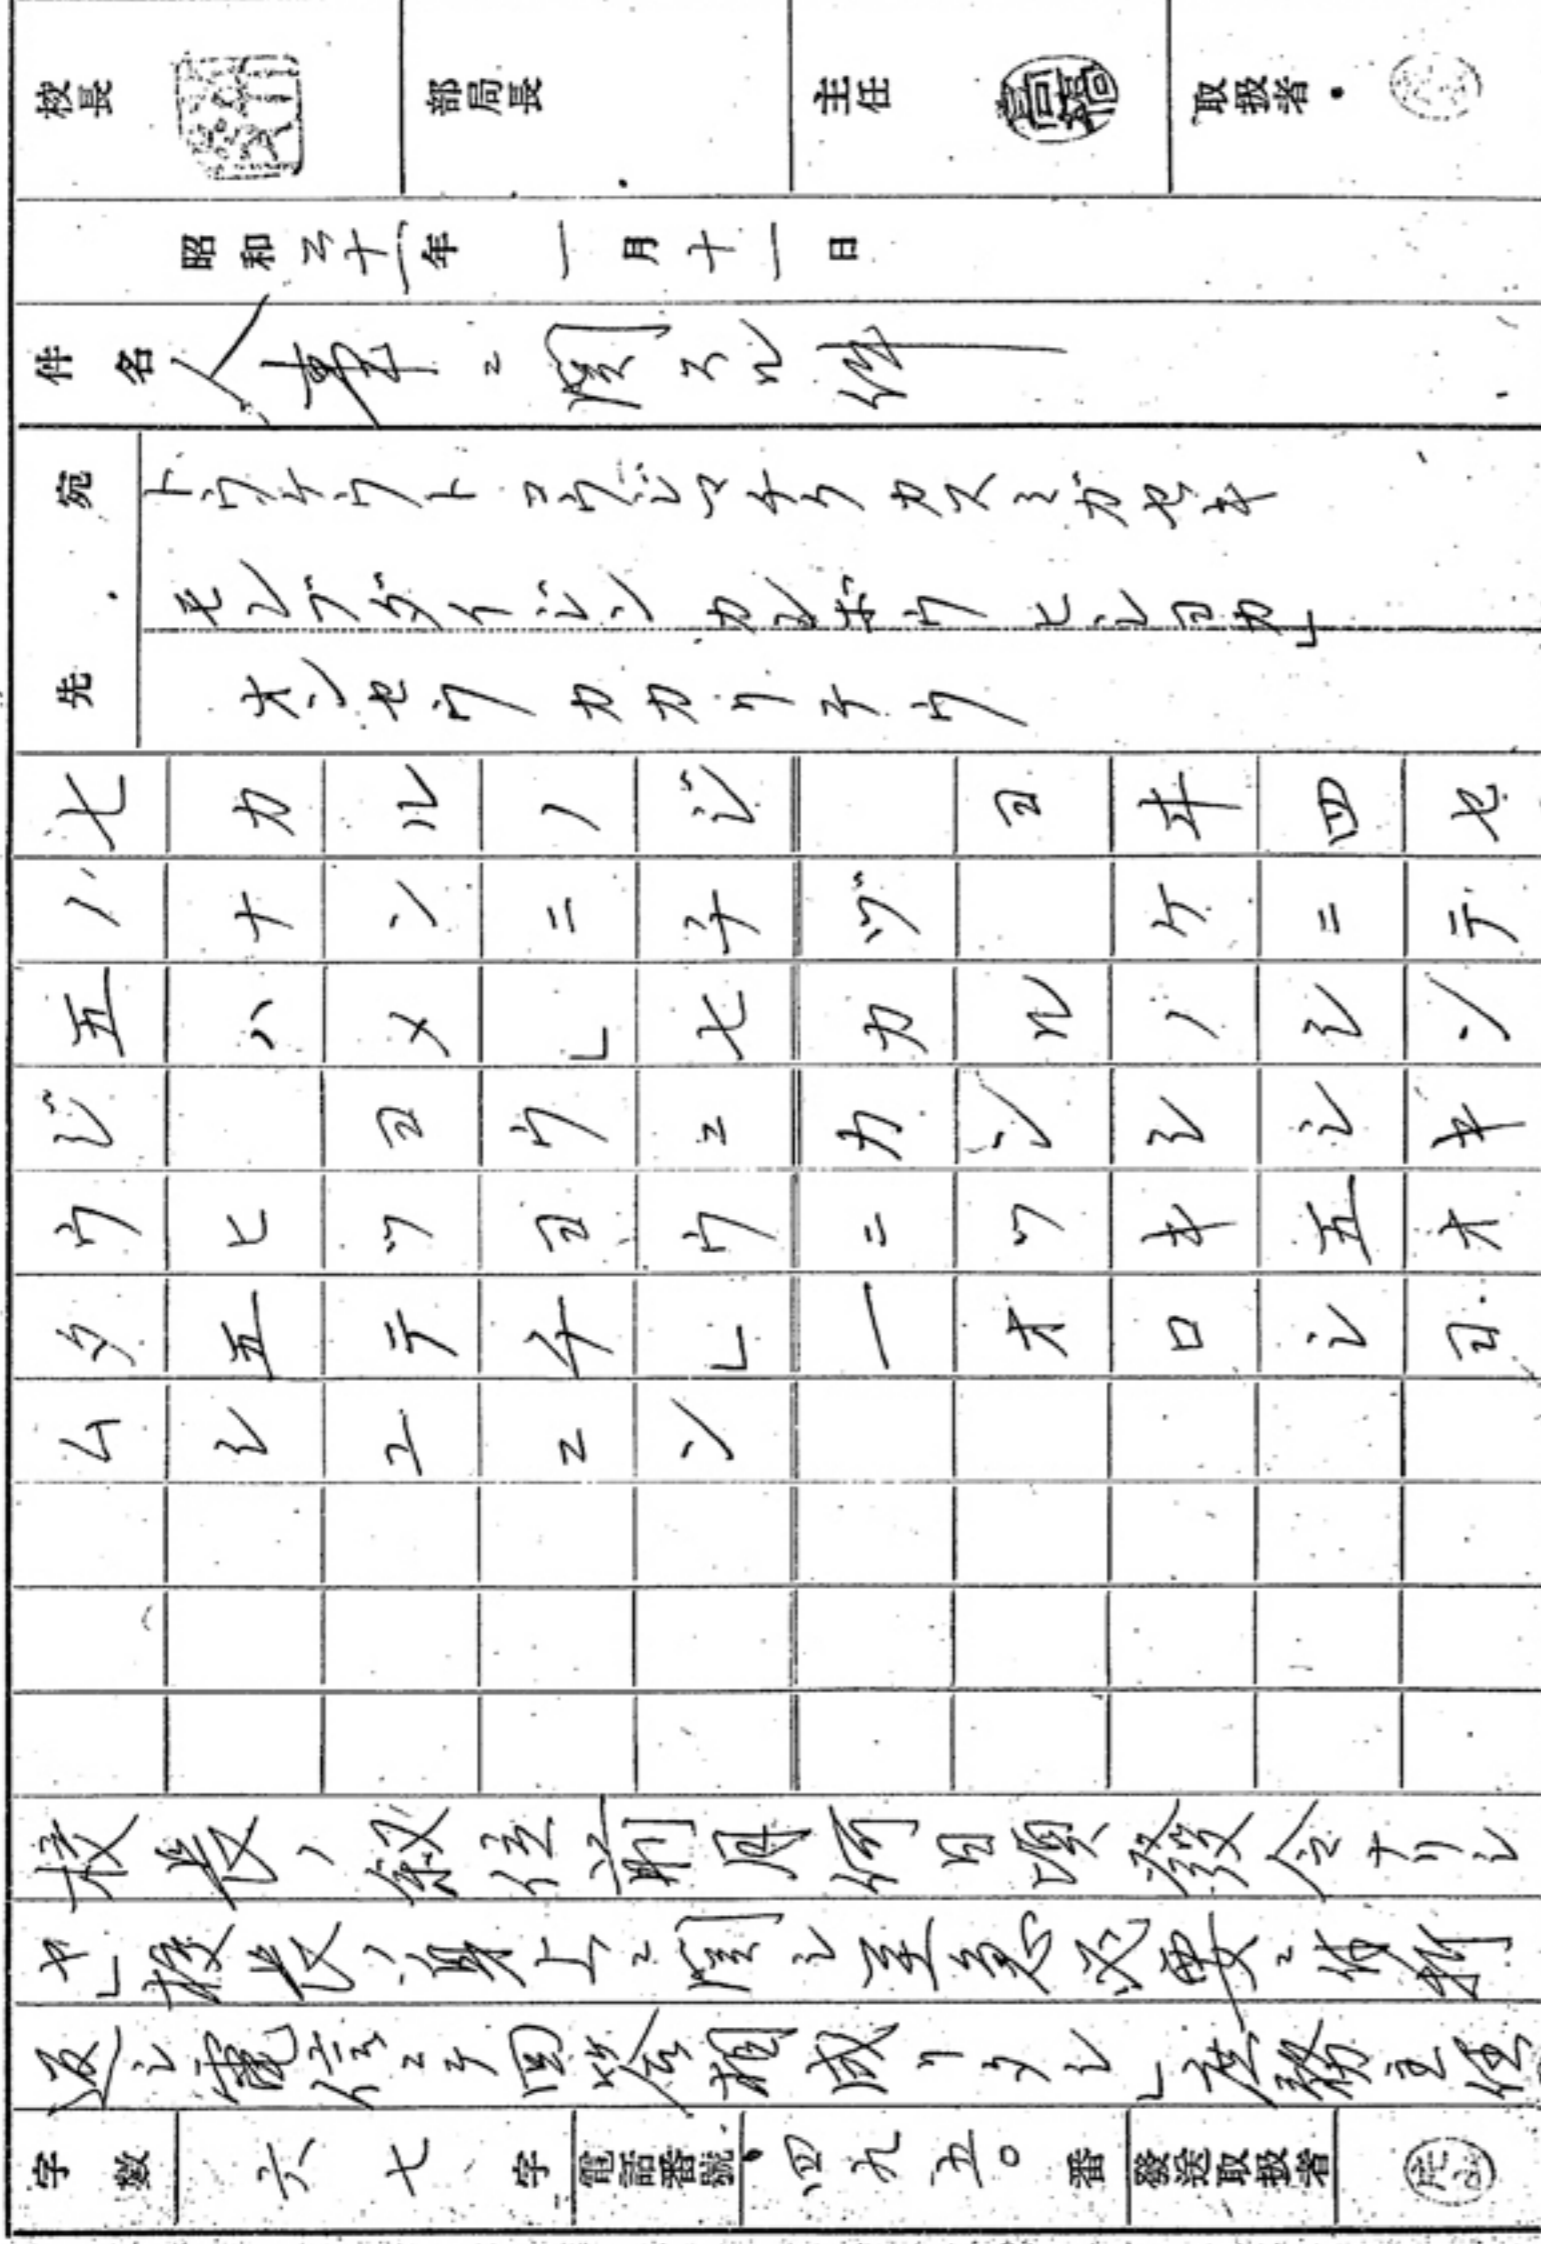 校長
部局長
主任 高橋
取扱者
昭和二十一年 一月十一日
件名 人事ニ関スル件
宛先 トウケウトコウジマチクカスミガセキ
モンブダイジンカンボウヒシヨカ」
オンセウカカリチウ
七カルノジ ヨヰ四セ
ノナンニチヅ ケニテ
五ハメ」七カルノシン
ジ ヨウニカンシシキ
ウヒツヨウニツキ五オ
タ五テチ」一オロシヨ
ムシユニン
校長ノ叙位前月何日頃發令ナリシ
ヤ」校長ノ身上ニ関シ至急必要ニ付折
返シ電信ニテ回答相成リタシ」庶務主任
字數 六七字 電話番號 四九五〇番 發送取扱者